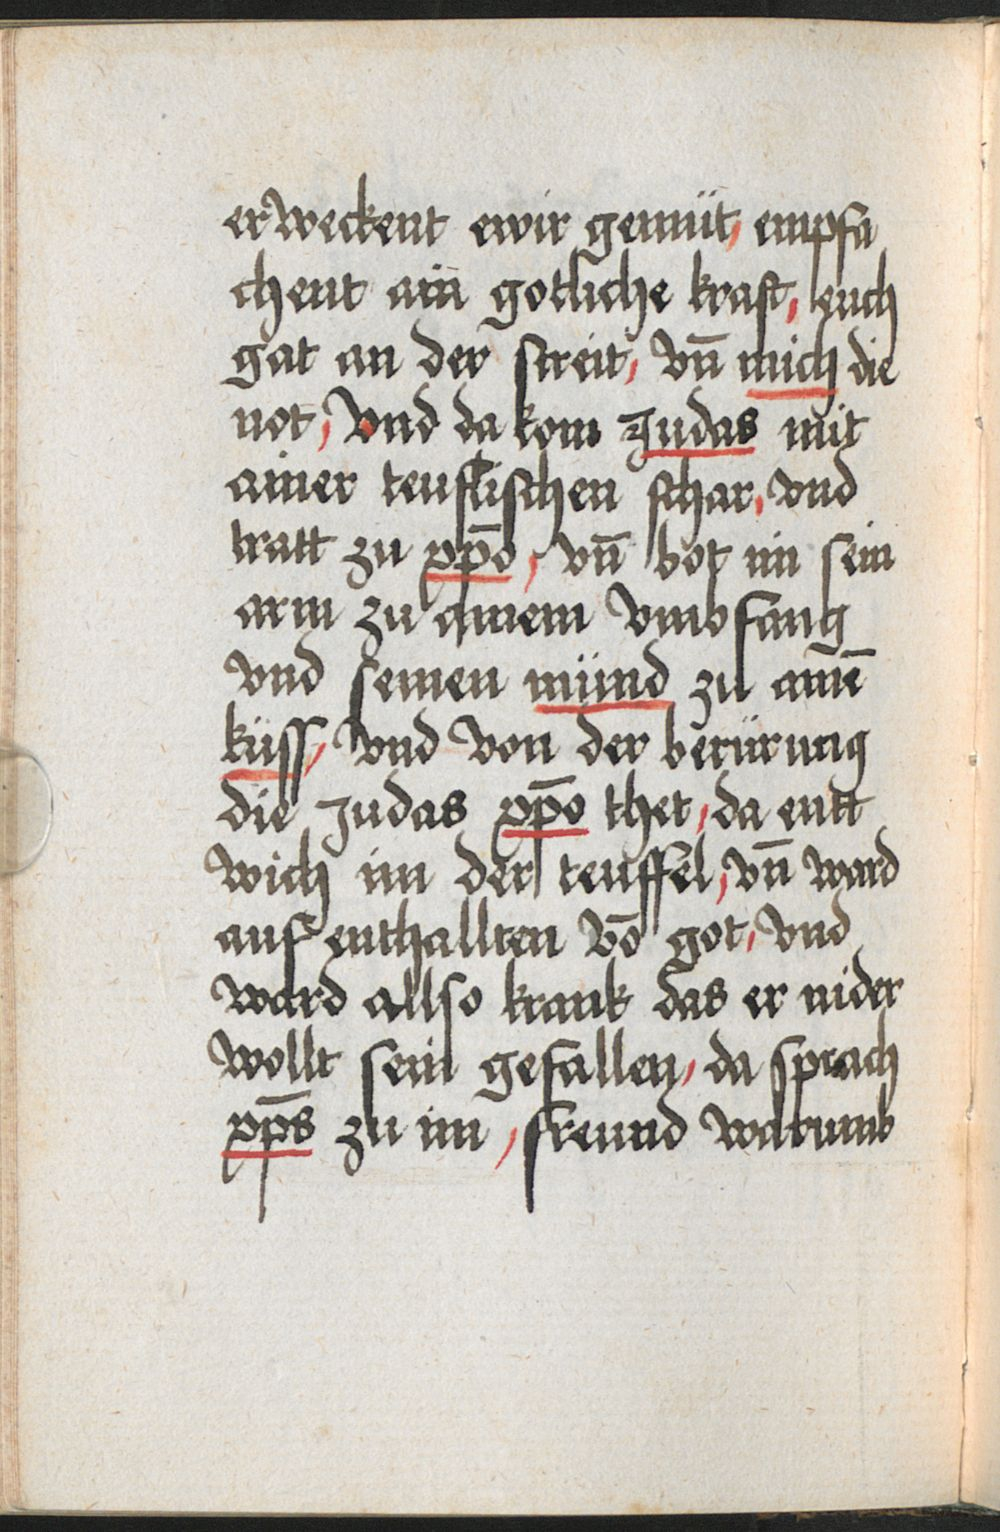 erweckent ewir gemüt, empfa
chent ain gotliche kraft, euch
gat an der streit, vn̄ mich die
not, vnd da kom Judas mit
ainer teuflischen schar, vnd
tratt zu xp̄o, vn̄ bot im sein
arm zu ainem vmbfang
vnd seinen mund zu ainē
küss, vnd von der berürung
die Judas xp̄o thet, da entt
wich im der teuffel, vn̄ ward
auf enthallten vō got, vnd
ward allso krank das er nider
wollt sein gefallen, da sprach
xp̄s zu im, freund warumb